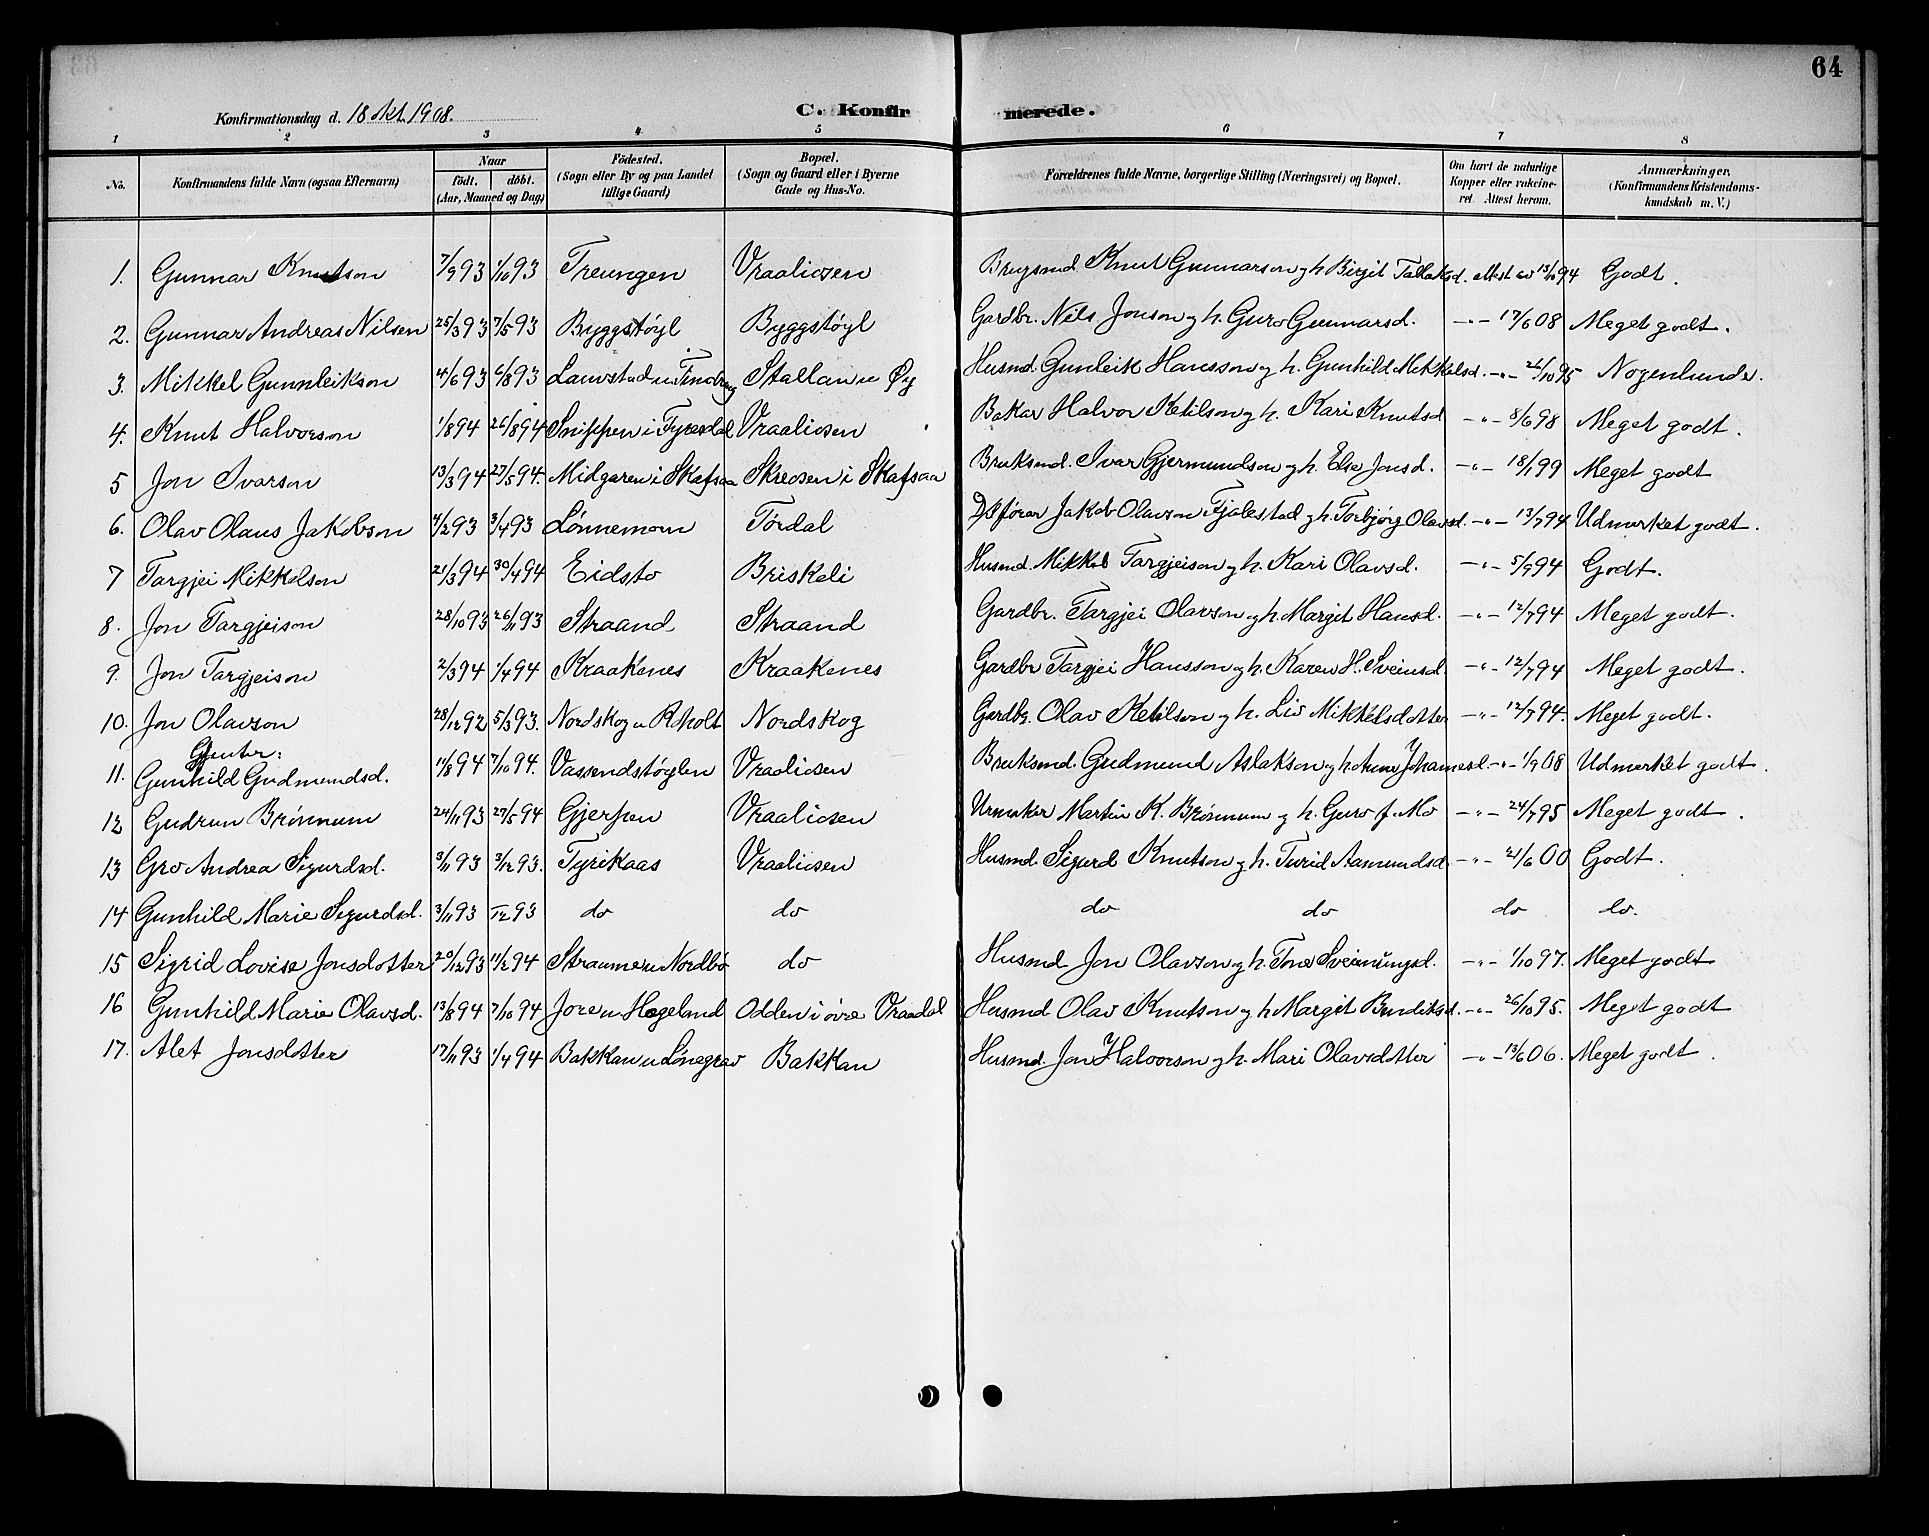 64
Konfirmationsdag d. 18 Okt. 1908. C. Konfirmerede.
1 2 3 4 5 6 7 8
No. Konfirmandens fulde Navn (ogsaa Efternavn) Naar født. døbt. (Aar, Maaned og Dag) Fødested. (Sogn eller By og paa Landet tillige Gaard) Bopæl. (Sogn og Gaard eller i Byerne Gade og Hus-No. Forældrenes fulde Navne, borgerlige Stilling (Næringsvei) og Bopæl. Om havt de naturlige Kopper eller vakcineret. Attest herom. Anmærkninger. (Konfirmandens Kristendomskundskab m. V.)
1. Gunnar Knutson 7/9 93 1/10 93 Treungen Vraaliosen Brugsmd. Knut Gunnarson og h. Birgit Tallaksd. attest av 13/10 94 Godt.
2. Gunnar Andreas Nilsen 25/3 93 7/5 93 Byggstøyl Byggstøyl Gardbr. Nils Jonson og h. Guro Gunnarsd. -"- 17/6 08 Meget godt.
3. Mikkel Gunnleikson 4/6 93 6/8 93 Lauvstad u Stallan u Øy Husmd. Gunleik Hansson og h. Gunhild Mikkelsd. -"- 26/10 95 Nogenlunde.
4. Knut Halvorson 1/8 94 26/8 94 Snippen i Fyresdal Vraaliosen Bakar Halvor Ketilson og h. Kari Knutsd -"- 8/6 98 Meget godt.
5 Jon Ivarson 13/3 94 27/5 94. Midgaren i Skafsaa Skreosen i Skafsaa Bruksmd. Ivar Gjermundson og h. Else Jonsd. -"- 18/1 99 Meget godt
6. Olav Olaus Jakobson 4/2 93 3/4 93 Lønnemom Tørdal Jakob Olavson Fjalestad og h. Torbjørg Olavsd. -"- 13/7 94 Udmerket godt.
7 Targjei Mikkelson 21/3 94 30/4 94 Eidsto Briskeli Husmd. Mikkel Targjeison og h. Kari Olavsd. -"- 5/7 94 Godt.
8. Jon Targjeison 28/10 93 26/11 93 Straand Straand Gardbr. Targjei Olavson og h. Margit Hansd. -"- 12/7 94 Meget godt.
9. Jon Targjeison 2/3 94 1/4 94 Kraakenes Kraakenes Gardbr Targjei Hansson og h. Karen H. Sveinsd. -"- 12/7 94 Meget godt.
10. Jon Olavson 28/12 92 5/3 93. Nordskog u Roholt Nordskog Gardbr. Olav Ketilson og h. Liv Mikkelsdotter -"- 12/7 94. Meget godt.
Gjenter:
11. Gunhild Gudmundsd. 11/8 94 7/10 94. Vassendstøylen Vraaliosen Bruksmd. Gudmund Aslakson og h. Anne Johannesd. -"- 1/9 08 Udmerket godt.
12 Gudrun Brønnum 24/11 93 27/5 94 Gjerpen Vraaliosen Urmaker Martin K. Brønnum og h. Guro f. Mo -"- 24/7 95 Meget godt.
13 Gro Andrea Sigurdsd. 3/11 93 3/12 93. Tyrikaas Vraaliosen Husmd Sigurd Knutson og h. Turid Aasmundsd. -"- 21/6 00 Godt.
14 Gunhild Marie Sigurdsd. 3/11 93 /12 93 do do do do do do.
15 Sigrid Lovise Jonsdotter 20/12 93 11/2 94 Straume u Nordbø do Husmd Jon Olavson og h. Tone Sveinungsd. -"- 1/10 97. Meget godt
16 Gunhild Marie Olavsd. 13/8 94 7/10 94 Jore u Hogeland Odden i øvre Vraadal Husmd Olav Knutson og h Margit Bendiksd. -"- 26/10 95. Meget godt
17. Alet Jonsdotter 17/11 93 1/4 94 Bakkan u Lønegrav Bakkan Husmd. Jon Halvorson og h. Mari Olavsdotter -"- 13/6 06. Meget godt.